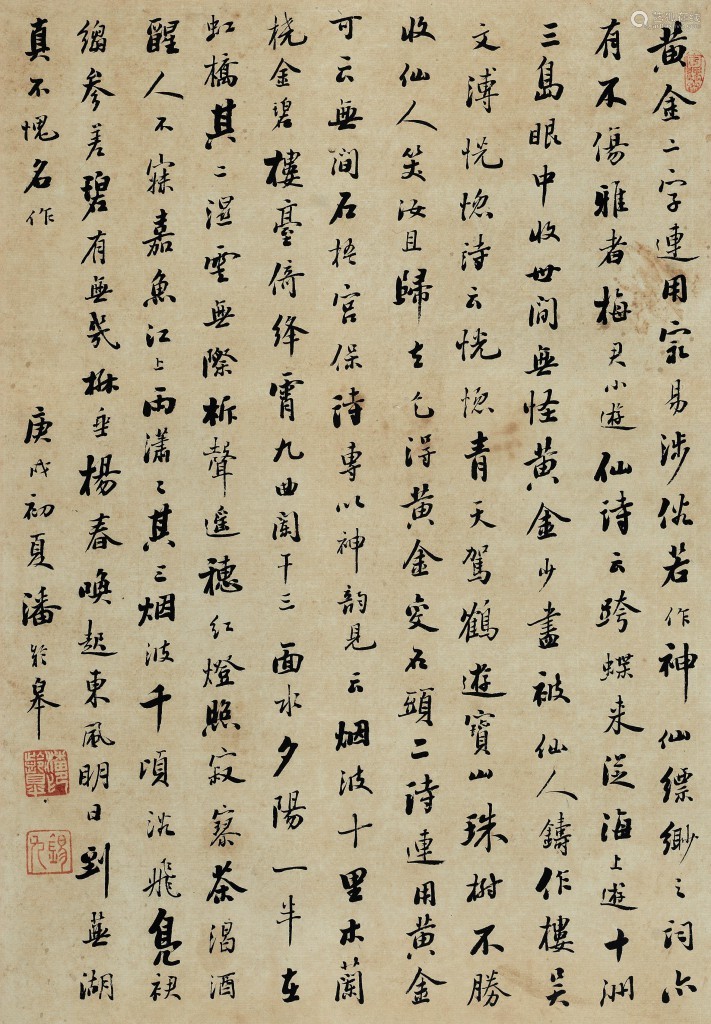 黄金二字連用最易涉俗若作神仙縹緲之詞亦
有不傷雅者梅君小遊仙詩云跨蝶来從海上遊十洲
三島眼中收世間無怪黄金少盡被仙人鑄作樓吴
文溥恍惚詩云恍惚青天駕鶴遊寶山珠樹不勝
收仙人笑汝且歸去乞得黄金变石頭二詩連用黄金
可云無間石梧宫保詩專以神韵見云烟波十里木蘭
橈金碧樓臺倚絳霄九曲闌干三面水夕陽一半在
虹橋其二濕雲無際柝聲遥穗红燈照寂寥茶渴酒
醒人不寐嘉魚江上雨瀟〻其三烟波千頃浴飛凫裙
䌷參差碧有無幾樹垂楊春喚起東風明日到蕪湖
真不愧名作
庚戌初夏潘齡皋
潘齡皋印
錫九